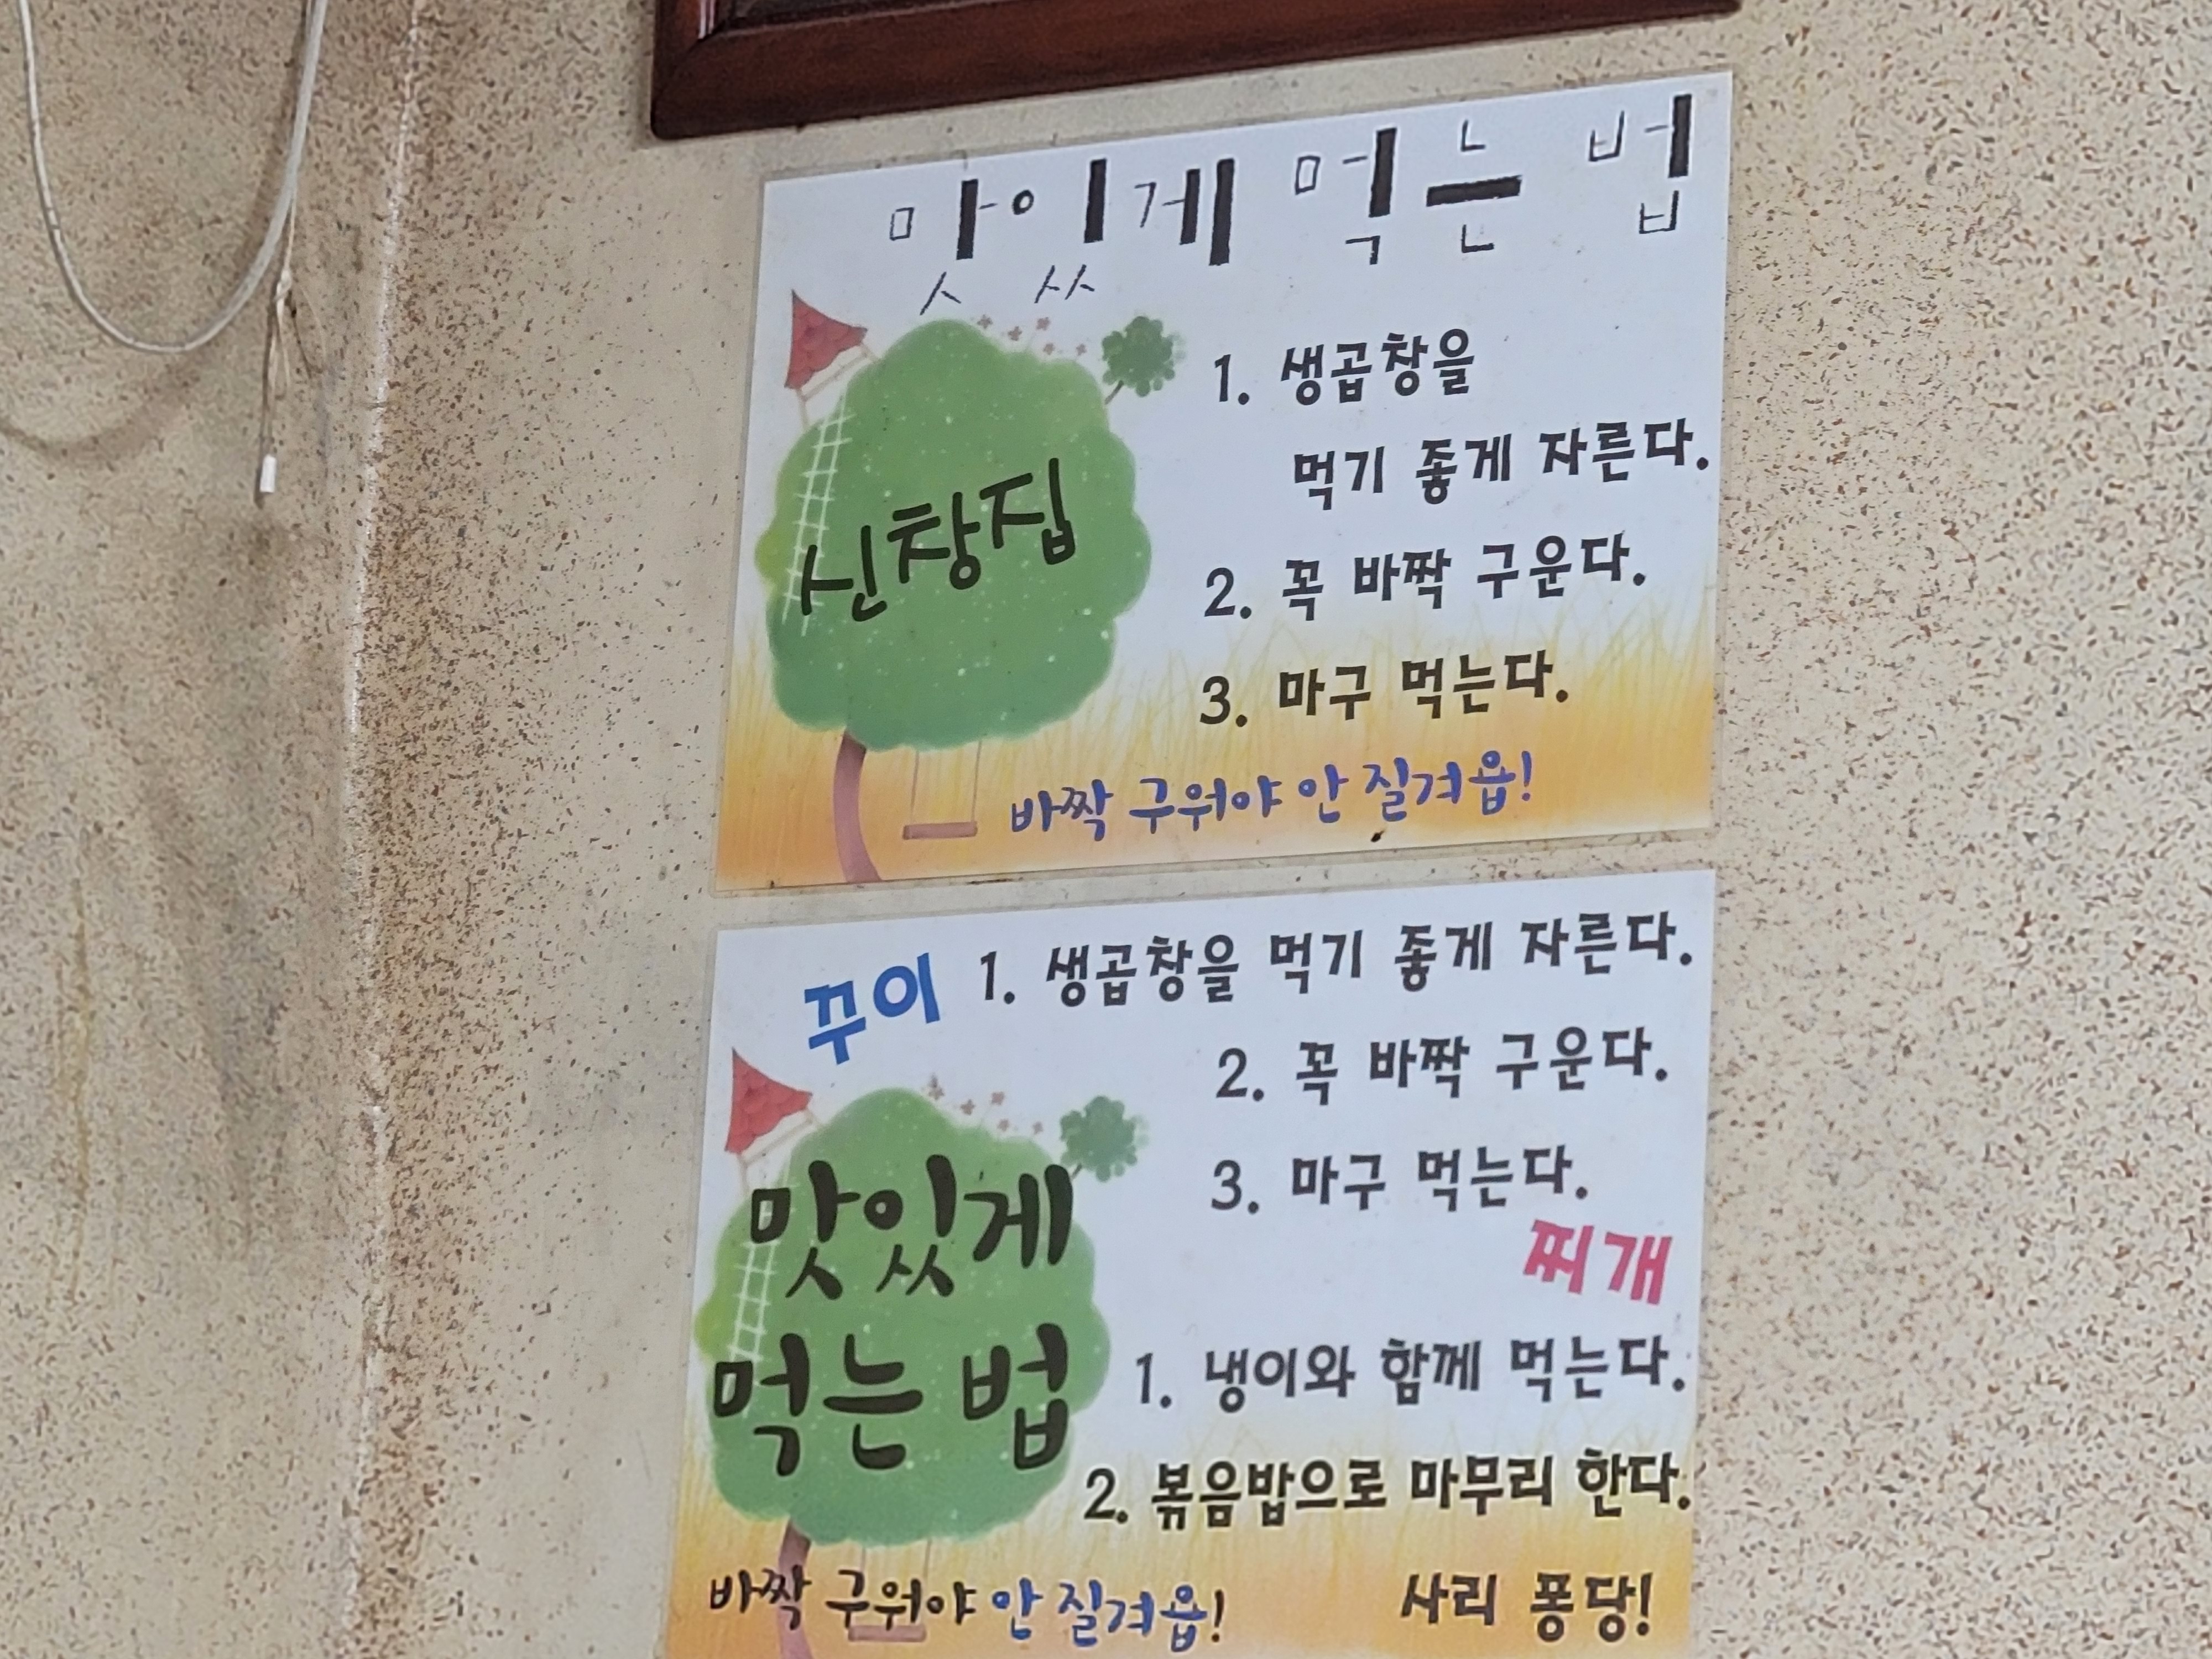 맛있게 먹는 법
신창집
1. 생곱창을
먹기 좋게 자른다.
2. 꼭 바짝 구운다.
3. 마구 먹는다.
바짝 구워야 안 질겨욥!
꾸이
1. 생곱창을 먹기 좋게 자른다.
2. 꼭 바짝 구운다.
3. 마구 먹는다.
맛있게
먹는 법
찌개
1. 냉이와 함께 먹는다.
2. 볶음밥으로 마무리 한다.
바짝 구워야 안 질겨욥!
사리 퐁당!